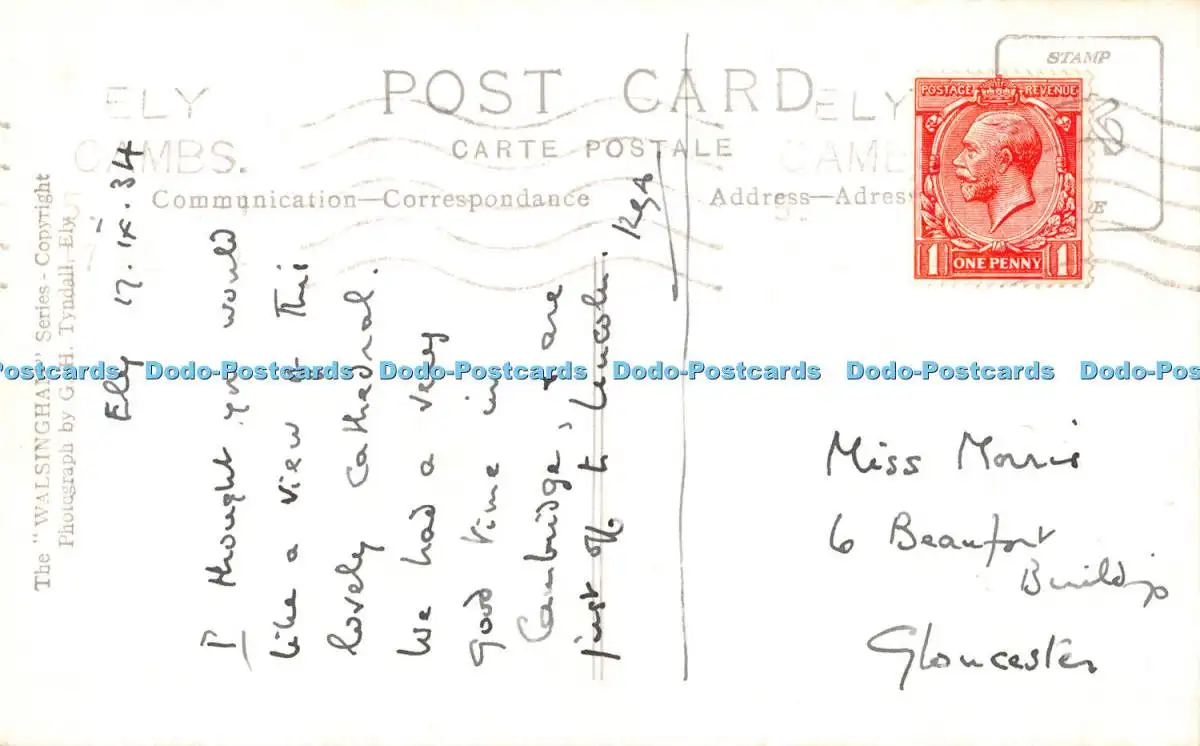 POST CARD
CARTE POSTALE
Communication—Correspondance
Address—Adres
STAMP
ELY
CAMBS.
ELY
CAMB
POSTAGE REVENUE
1 ONE PENNY 1
The "WALSINGHAM" Series - Copyright
Photograph by G. H. Tyndall, Ely.
Ely 17. IX. 34
I thought you would
like a view of this
lovely Cathedral.
We had a very
good time in
Cambridge, & are
just off to Lincoln.
Miss Morris
6 Beaufort
Buildings
Gloucester
Dodo-Postcards Dodo-Postcards Dodo-Postcards Dodo-Postcards Dodo-Postcards Dodo-Postc